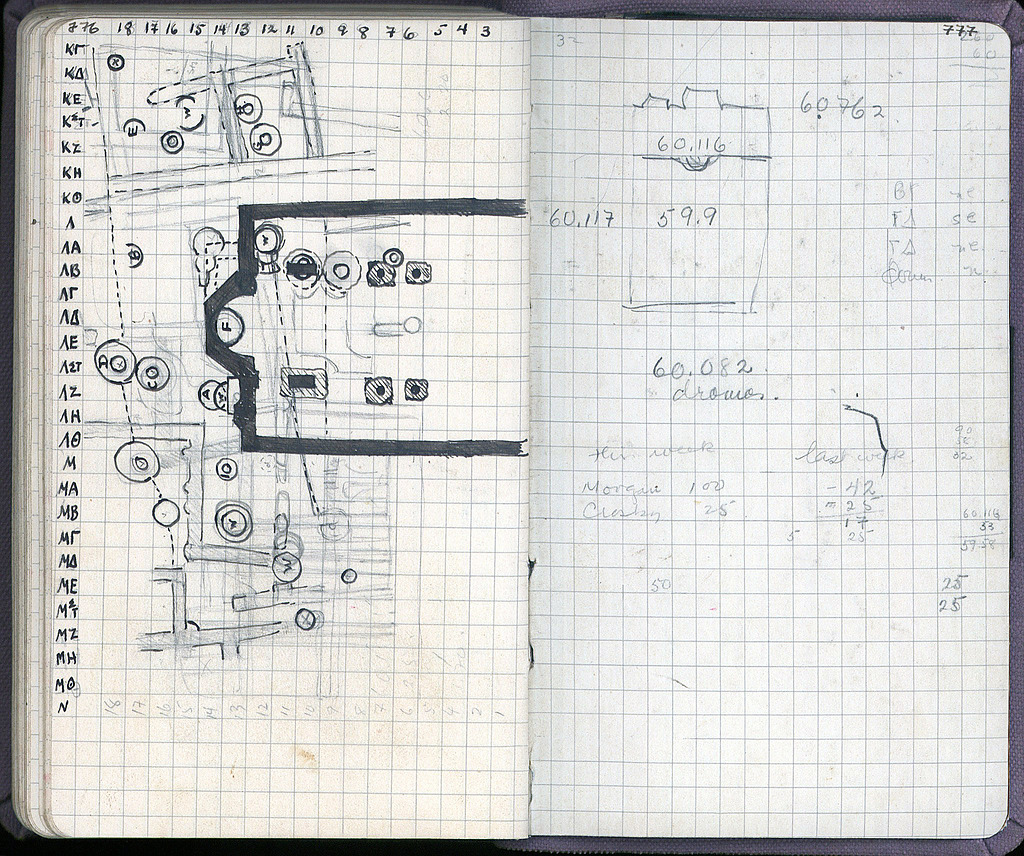 776 18 17 16 15 14 13 12 11 10 9 8 7 6 5 4 3
ΚΓ
ΚΔ
ΚΕ
ΚΣΤ
ΚΖ
ΚΗ
ΚΘ
Λ
ΛΑ
ΛΒ
ΛΓ
ΛΔ
ΛΕ
ΛΣΤ
ΛΖ
ΛΗ
ΛΘ
Μ
ΜΑ
ΜΒ
ΜΓ
ΜΔ
ΜΕ
ΜΣΤ
ΜΖ
ΜΗ
ΜΘ
Ν
E
W
B
W
F
D
CO
A
W
W
W
18 17 16 15 14 13 12 11 10 9 8 7 6 5 4 2 1
777
32
60
60.762
60.116
60.117 59.9
ΒΓ ne
ΓΔ se
ΓΔ ne
60.082
dromos.
90
32
this week last week
Morgan 100 - 42
Crosby 25 = 25
17
5 25
60.116
53
59.58
50 25
25